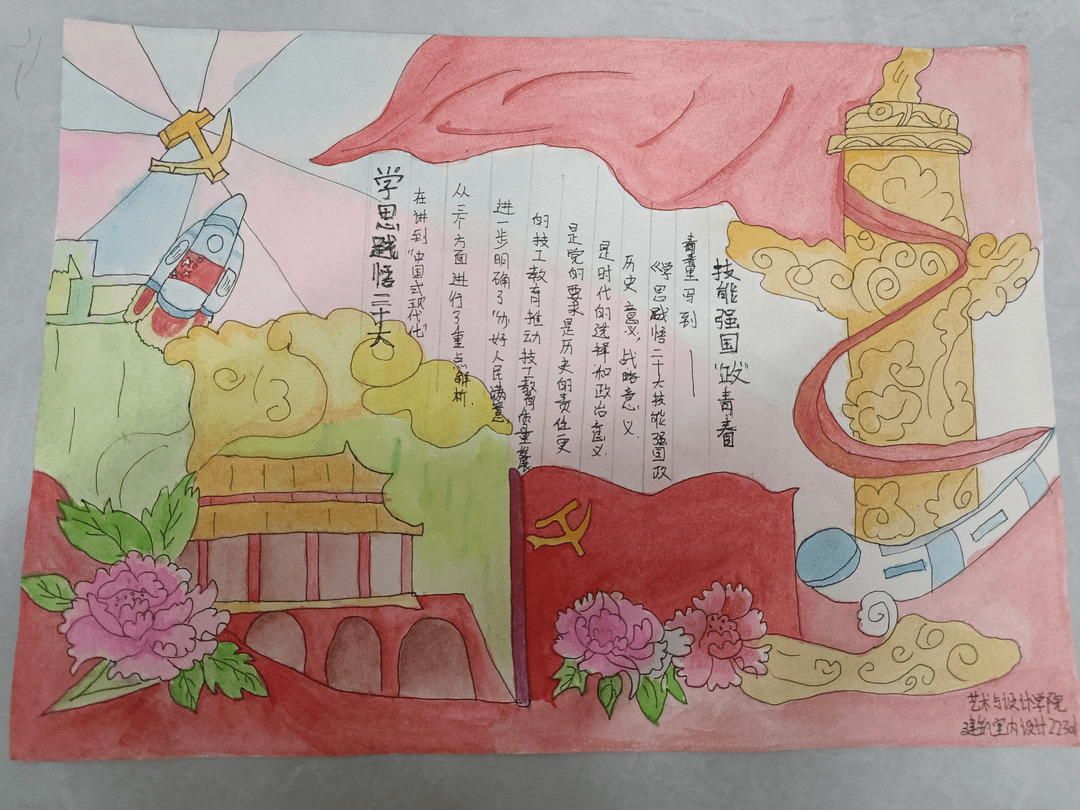 技能强国“政”青春
青春里 写到 ——
《学思践悟二十大技能强国政
历史意义，战略意义．
是时代的选择和政治意义．
是党的要求 是历史的责任更
的技工教育推动技工教育质量发展
进一步明确了“办好人民满意
从三个方面进行了重点解析．
在讲到“中国式现代化”
学思践悟二十大
艺术与设计学院
建筑室内设计223d1